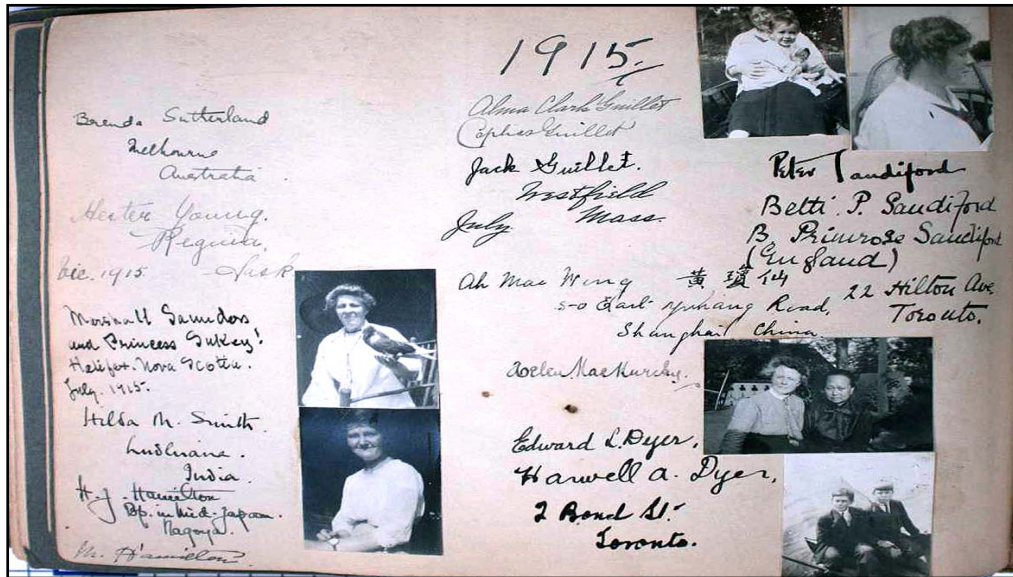 1915.
Brenda Sutherland
Melbourne
Australia.
Hester Young.
Regina,
Dec. 1915 Sask
Marshall Saunders
and Princess Sukey!
Halifax. Nova Scotia.
July. 1915.
Hilda M. Smith.
Ludhiana.
India.
H. J. Hamilton
Bp. in Mid-Japan.
Nagoya.
M. Hamilton.
Alma Clark Guillet
Cephas Guillet
Jack Guillet.
Westfield
July Mass.
Ah Mae Wong 黄瓊仙
East Road,
Shanghai China
Helen MacMurchy.
Edward L. Dyer,
Harwell A. Dyer,
2 Bond St.
Toronto.
Peter Sandiford
Betti P. Sandiford
B. Primrose Sandiford
(England)
22 Hilton Ave
Toronto.